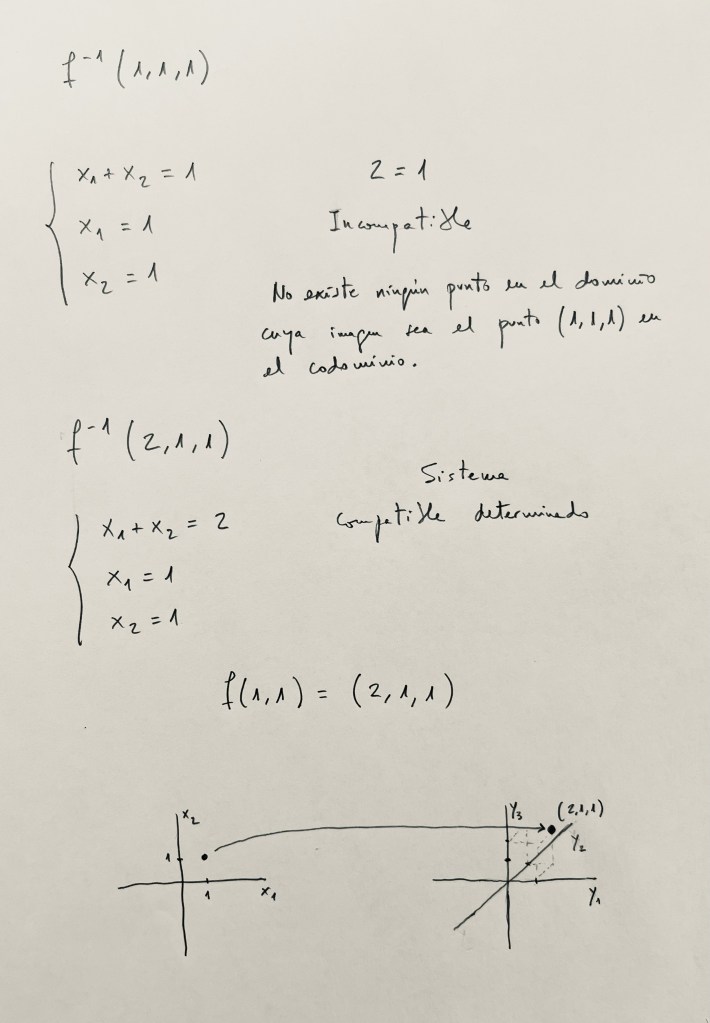 f⁻¹ (1,1,1)
x₁ + x₂ = 1
x₁ = 1
x₂ = 1
2 = 1
Incompatible
No existe ningún punto en el dominio
cuya imagen sea el punto (1,1,1) en
el codominio.
f⁻¹ (2,1,1)
Sistema
compatible determinado
x₁ + x₂ = 2
x₁ = 1
x₂ = 1
f(1,1) = (2,1,1)
x₂
1
1
x₁
y₃
(2,1,1)
y₂
y₁